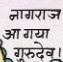 नागराज
आ गया
गुरुदेव!